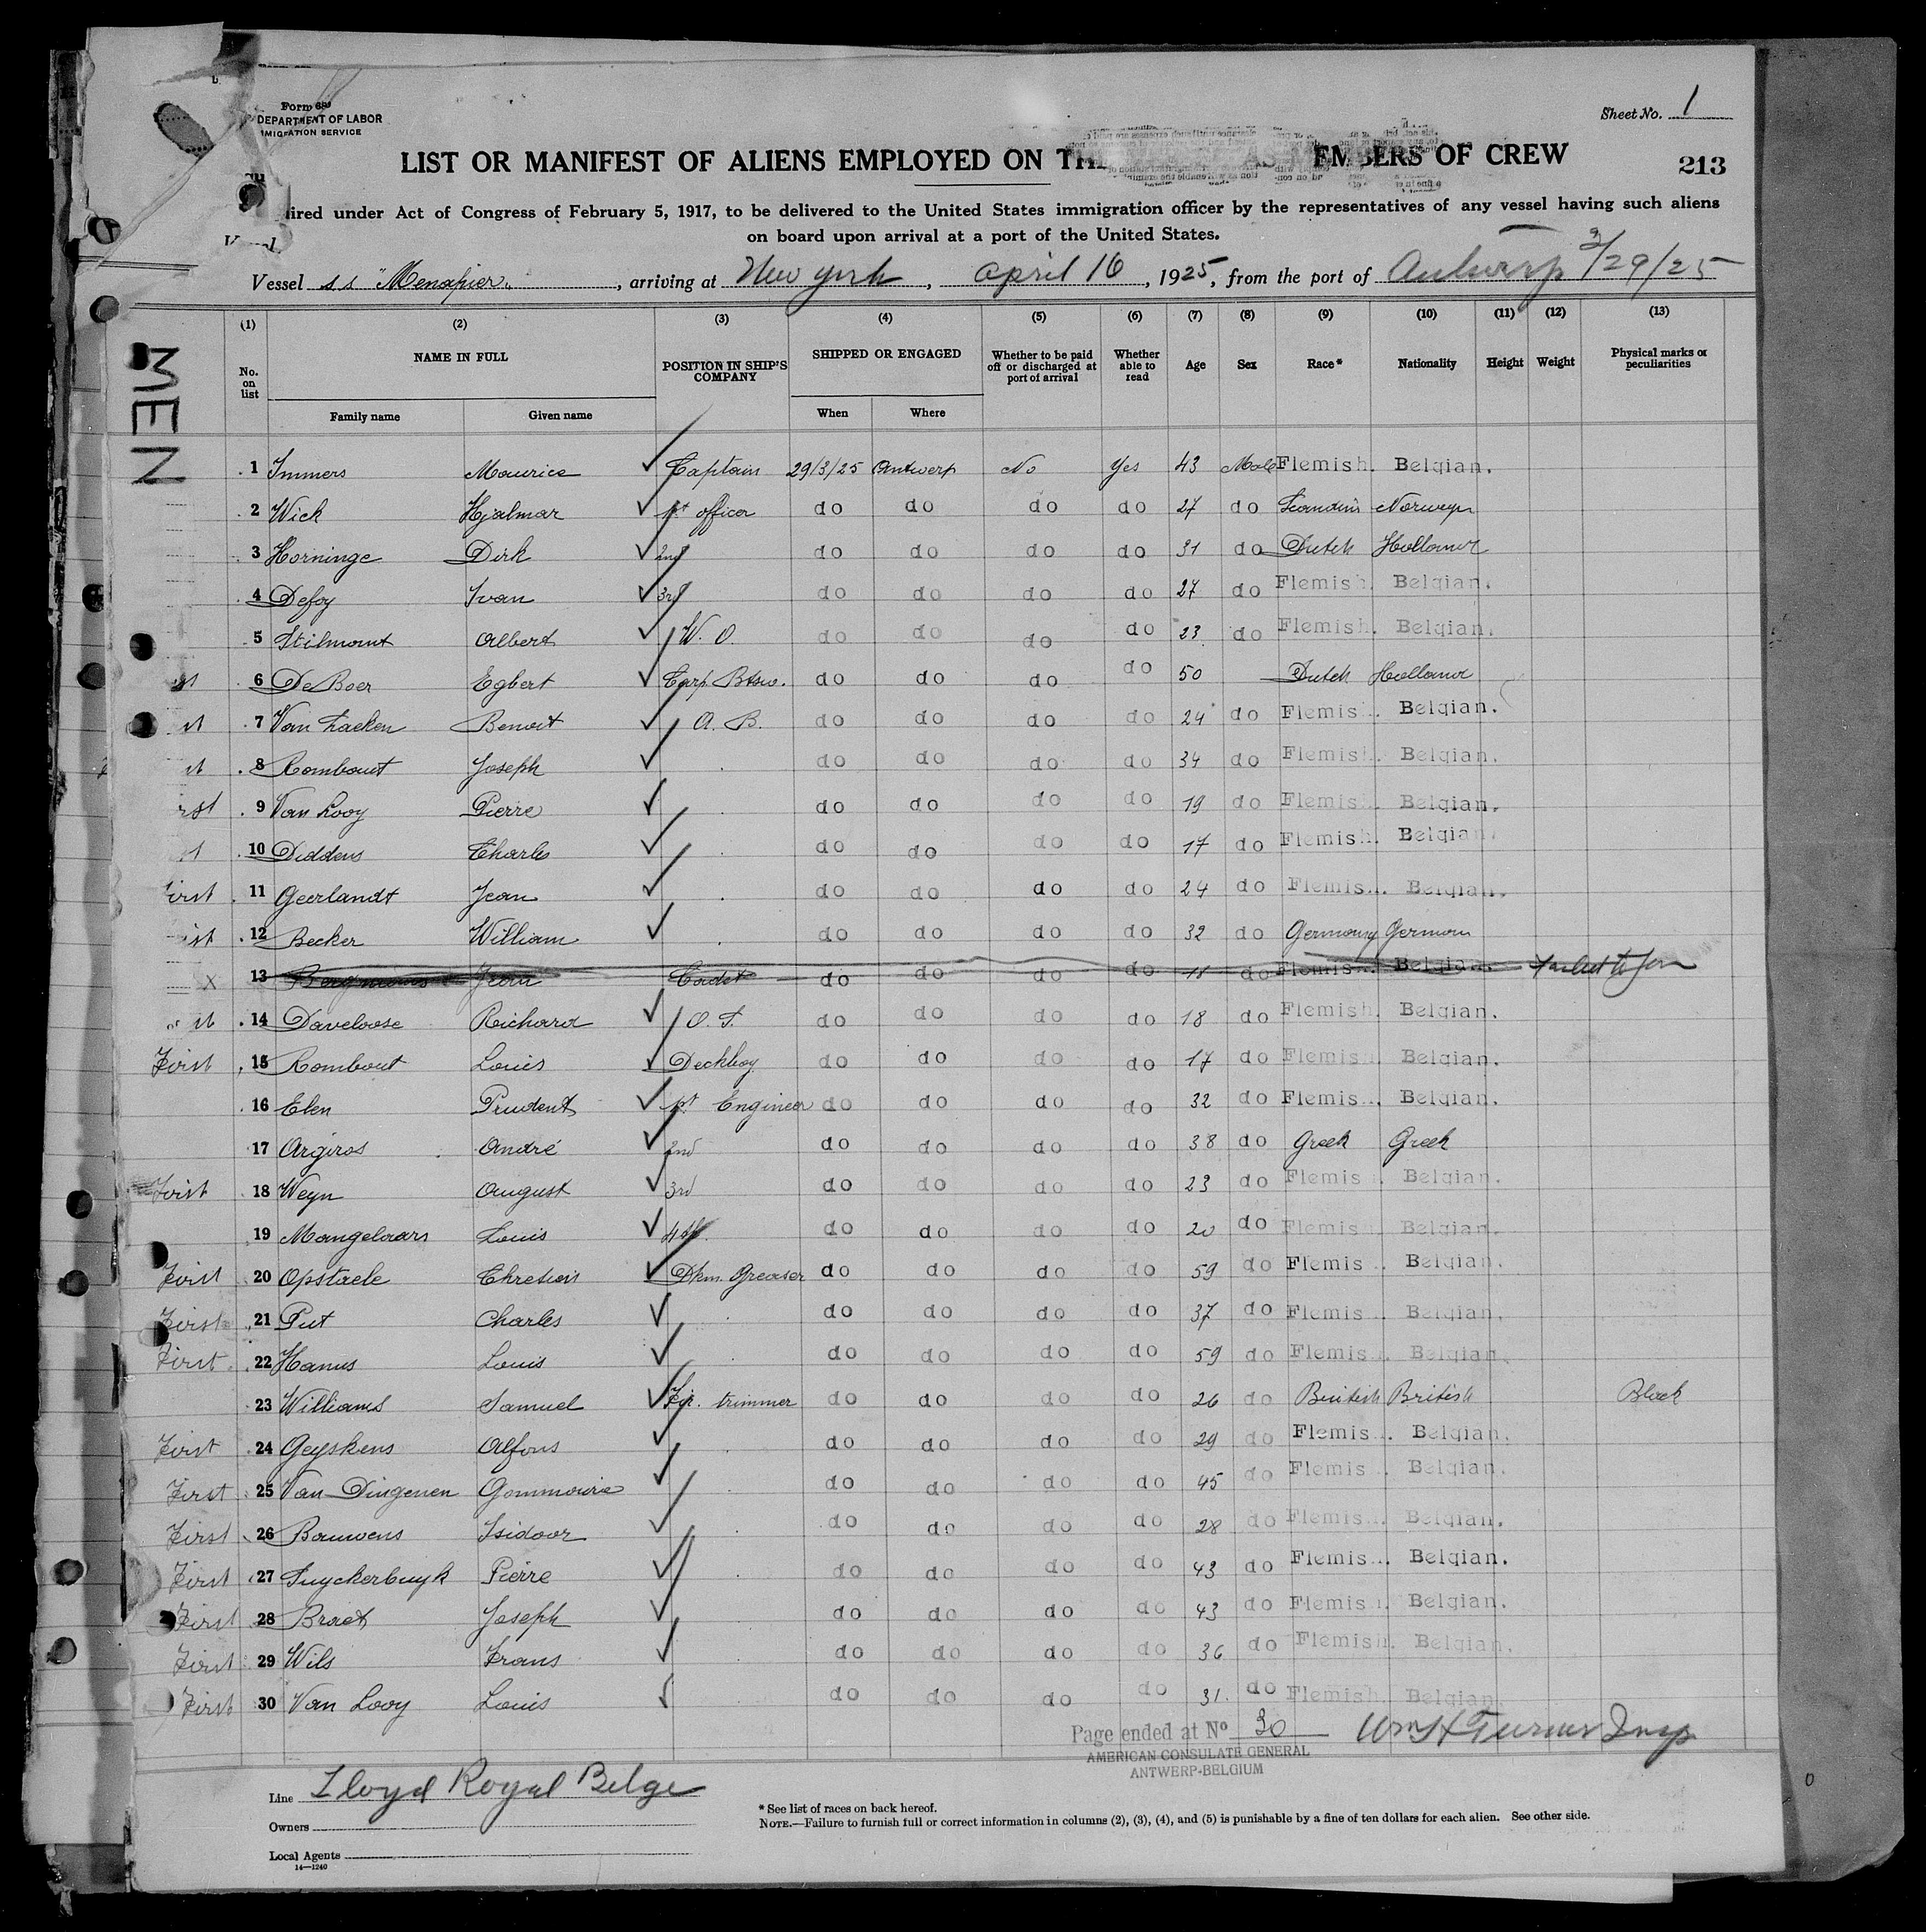 Form 689
DEPARTMENT OF LABOR
IMIGRATION SERVICE
Sheet No. 1
LIST OR MANIFEST OF ALIENS EMPLOYED ON THE AS MEMBERS OF CREW
213
ired under Act of Congress of February 5, 1917, to be delivered to the United States immigration officer by the representatives of any vessel having such aliens
on board upon arrival at a port of the United States.
Vessel s s "Menapier", arriving at New York, April 16, 1925, from the port of Antwerp 3/29/25
MEN
(1) (2) (3) (4) (5) (6) (7) (8) (9) (10) (11) (12) (13)
No. on list NAME IN FULL POSITION IN SHIP'S COMPANY SHIPPED OR ENGAGED Whether to be paid off or discharged at port of arrival Whether able to read Age Sex Race* Nationality Height Weight Physical marks or peculiarities
Family name Given name When Where
1 Immers Maurice Captain 29/3/25 Antwerp No Yes 43 Male Flemish. Belgian.
2 Wick Hjalmar 1st officer do do do do 27 do Scandin Norweg
3 Horninge Dirk 2nd do do do do 31 do Dutch Holland
4 Defoy Ivan 3rd do do do do 27 do Flemish. Belgian.
5 Stilmant Albert W. O. do do do do 23 do Flemish. Belgian.
6 De Boer Egbert Carp. Btsw. do do do do 50 Dutch Holland
7 Van Laeken Benoit A. B. do do do do 24 do Flemish. Belgian.
8 Rombout Joseph do do do do 34 do Flemish. Belgian.
9 Van Looy Pierre do do do do 19 do Flemish. Belgian.
10 Diddens Charles do do do do 17 do Flemish. Belgian.
First 11 Geerlandt Jean do do do do 24 do Flemish. Belgian.
12 Becker William do do do do 32 do Germany German
X 13 Jean Cadet do do do do 18 do Flemish. Belgian. failed to join
14 Daveloose Richard O. S. do do do do 18 do Flemish. Belgian.
First 15 Rombout Louis Deckboy do do do do 17 do Flemish. Belgian.
16 Elen Prudent 1st Engineer do do do do 32 do Flemish. Belgian.
17 Argiros André 2nd do do do do 38 do Greek Greek
First 18 Weyn August 3rd do do do do 23 do Flemish. Belgian.
19 Mangelaars Louis 4th. do do do do 20 do Flemish. Belgian.
First 20 Opstaele Chretien Dkm. Greaser do do do do 59 do Flemish. Belgian.
First 21 Put Charles do do do do 37 do Flemish. Belgian.
First 22 Hanus Louis do do do do 59 do Flemish. Belgian.
23 Williams Samuel Fir. trimmer do do do do 26 do British British Black
First 24 Geyskens Alfons do do do do 29 do Flemish. Belgian.
First 25 Van Dingenen Gommaire do do do do 45 do Flemish. Belgian.
First 26 Bauwens Isidoor do do do do 28 do Flemish. Belgian.
First 27 Suyckerbuyk Pierre do do do do 43 do Flemish. Belgian.
First 28 Braet Joseph do do do do 43 do Flemish. Belgian.
First 29 Wils Frans do do do do 36 do Flemish. Belgian.
First 30 Van Looy Louis do do do do 31. do Flemish. Belgian.
Page ended at No 30 Wm H Turner Insp
AMERICAN CONSULATE GENERAL
ANTWERP-BELGIUM
Line Lloyd Royal Belge
Owners
Local Agents
14—1240
* See list of races on back hereof.
NOTE.—Failure to furnish full or correct information in columns (2), (3), (4), and (5) is punishable by a fine of ten dollars for each alien. See other side.